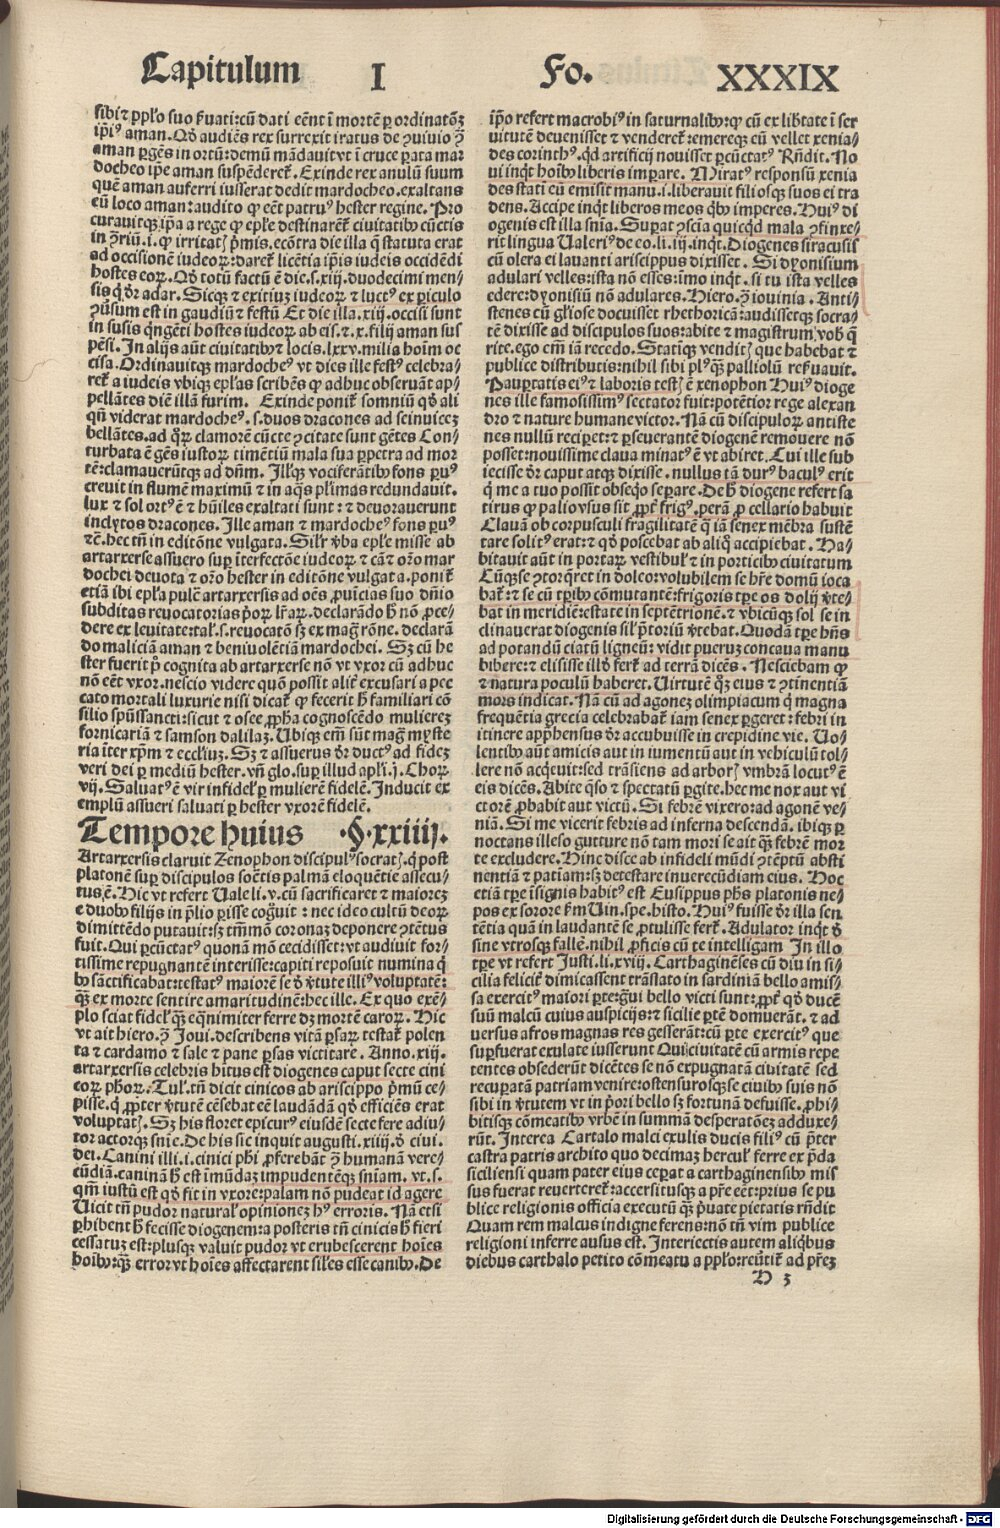 Capitulum I Fo. XXXIX
sibi ⁊ pp̄lo suo ẜuati: cū dati eēnt ī mortē ꝑ ordinatōẽ
ip̄iꝰ aman. Qḋ audiēs rex surrexit iratus de ꝯuiuio ⁊
aman ꝑgēs in ortū: demū mādauit vt ī cruce ꝑata mar
docheo ip̄e aman suspēderet᷑. Exinde rex anulū suum
quē aman auferri iusserat dedit mardocheo. exaltans
eū loco aman: audito ꝙ eēt patruꝰ hester regine. Pro
curauitqꝫ ip̄a a rege ꝙ eple destinarēt᷑ ciuitatibꝰ cūctis
in ꝯriū .i. ꝙ irritat᷑ p̄mis. ecōtra die illa q̄ statuta erat
ad occisionē iudeoꝝ: daret᷑ licētia ip̄is iudeis occidēdi
hostes eoꝝ. Qḋ totū factū ē die .s. xiij. duodecimi men⸗
sis q̄ dr̄ adar. Sicqꝫ ⁊ exitiuꝫ iudeoꝝ ⁊ luctꝰ ex ꝑiculo
ꝯūsum est in gaudiū ⁊ festū Et die illa .xiij. occisi sunt
in susis q̄ngēti hostes iudeoꝝ ab eis. ⁊ .x. filij aman sus
pēsi. In alijs aūt ciuitatibꝰ ⁊ locis. lxxv. milia hoīm oc
cisa. Ordinauitqꝫ mardocheꝰ vt dies ille festꝰ celebra⸗
ret᷑ a iudeis vbiqꝫ ep̄las scribēs ꝙ adhuc obseruāt ap⸗
pellātes diē illā furim. Exinde ponit᷑ somniū qḋ ali
qn̄ viderat mardocheꝰ .s. duos dracones ad seinuiceꝫ
bellātes. ad q̄ꝝ clamorē cūcte ꝯcitate sunt gētes Con⸗
turbata ē gēs iustoꝝ timētiū mala sua ꝑpetra ad mor
tē: clamauerūtqꝫ ad dn̄m. Illisqꝫ vociferātibꝰ fons ꝑuꝰ
creuit in flumē maximū ⁊ in aq̄s pl̄imas redundauit.
lux ⁊ sol ortꝰ ē ⁊ hūiles exaltati sunt: ⁊ deuorauerunt
inclytos dracones. Ille aman ⁊ mardocheꝰ fons ꝑuꝰ
⁊c̄. hec tn̄ in editōne vulgata. Silꝛ ꝟba ep̄le misse ab
artarxerse assuero suꝑ īterfectōe iudeoꝝ ⁊ cā ⁊ or̄o mar
dochei deuota ⁊ or̄o hester in editōne vulgata. ponit᷑
etiā ibi ep̄la pulē artarxersis ad oēs ꝓuīcias suo dn̄io
subditas reuocatorias p̄oꝝ lr̄aꝝ. declarādo h̄ nō ꝓce⸗
dere ex leuitate: tal̓ .s. reuocatō sꝫ ex mag̓ rōne. declarā
do maliciā aman ⁊ beniuolētiā mardochei. Sꝫ cū he
ster fuerit p̄ cognita ab artarxerse nō vt vxor cū adhuc
nō eēt vxor. nescio videre quō possit alir̄ excusari a pec
cato mortali luxurie nisi dicat᷑ ꝙ fecerit h̄ familiari cō
silio sp̄ussancti: sicut ⁊ osee ꝓp̄ha cognoscēdo mulierez
fornicariā ⁊ samson dalilaꝫ. Ubiqꝫ em̄ sūt mag̓ myste
ria īter xp̄m ⁊ eccl̄iaꝫ. Sꝫ ⁊ assuerus dr̄ ductꝰ ad fideꝫ
veri dei ꝑ mediū hester. vn̄ glo. suꝑ illud apl̄i .j. Choꝝ
vij. Saluatꝰ ē vir infidel̓ ꝑ mulierē fidelē. Inducit ex
emplū assueri saluati ꝑ hester vxorē fidelē.
Tempore huius ·§·xxiiij.
Artarxersis claruit Zenophon discipulꝰ socrat᷑. q̄ post
platonē suꝑ discipulos soc̄tis palmā eloquētie assecu⸗
tus ē. Hic vt refert Uale li. v. cū sacrificaret ⁊ maioreꝫ
e duobꝰ filijs in p̄lio ꝑisse cog̓uit: nec ideo cultū deoꝝ
dimittēdo putauit: sꝫ tm̄mō coronaꝫ deponere ꝯtētus
fuit. Qui ꝑcūctatꝰ quonā mō cecidisset: vt audiuit for⸗
tissime repugnantē interisse: capiti reposuit numina q̄
bꝰ sāctificabat: testatꝰ maiorē se ḋ ꝟtute illiꝰ voluptatē:
q̄ꝫ ex morte sentire amaritudinē: hec ille. Ex quo exē⸗
plo sciat fidel̓ q̄ꝫ eq̄nimiter ferre dꝫ mortē caroꝝ. Hic
vt ait hiero. ⁊ Ioui. describens vitā ꝑsaꝝ testat᷑ polen
ta ⁊ cardamo ⁊ sale ⁊ pane ꝑsas victitare. Anno. xiij.
artarxersis celebris hitus est diogenes caput secte cini
coꝝ ph̄oꝝ. Tul̓. tn̄ dicit cinicos ab ariscippo p̄mū ce⸗
pisse. q̄ ꝓpter ꝟtutē cēsebat eē laudādā qḋ efficiēs erat
voluptat᷑. Sꝫ his floret epicurꝰ eiusdē secte fere adiu⸗
tor actorqꝫ snīe. De his sic inquit augusti. xiiij. ḋ ciui.
dei. Canini illi .i. cinici ph̄i ꝓferebāt ⁊ humanā vere⸗
cūdiā. caninā h̄ est īmūdaꝫ impudentēqꝫ sniam. vt .s.
qm̄ iustū est qḋ fit in vxore: palam nō pudeat id agere
Uicit tn̄ pudor natural̓ opinioneꝫ hꝰ erroris. Nā etsi
ꝑhibent h̄ fecisse diogenem: a posteris tn̄ cinicis h̄ fieri
cessatuꝫ est: plusqꝫ valuit pudor vt erubescerent hoīes
hoībꝰ: q̄ꝫ error vt hoīes affectarent siles esse canibꝰ. De
ip̄o refert macrobiꝰ in saturnalibꝰ: ꝙ cū ex lib̄tate ī ser
uitutē deuenisset ⁊ venderet᷑: emereqꝫ cū vellet xenia⸗
des corinthꝰ. qḋ artificij nouisset ꝑcūctatꝰ Rn̄dit. No
ui inq̄t hoībꝰ liberis imꝑare. Miratꝰ responsū xenia
des stati cū emisit manu .i. liberauit filiosqꝫ suos ei tra
dens. Accipe inq̄t liberos meos q̄bꝰ imperes. Huiꝰ di
ogenis est illa snīa. Suꝑat ꝯscīa quicqḋ mala ꝯfinxe⸗
rit lingua Ualeriꝰ de eo. li. iij. inq̄t. Diogenes siracusis
cū olera ei lauanti ariscippus dixisset. Si dyonisium
adulari velles: ista nō esses: īmo inq̄t. si tu ista velles
edere: dyonisiū nō adulares. Hiero. ⁊ iouinia. Anti⸗
stenes cū gl̄iose docuisset rhetoricā: audissetqꝫ socra⸗
tē dixisse ad discipulos suos: abite ⁊ magistrum vob̄ q̄
rite. ego em̄ iā recedo. Statīqꝫ vendit᷑ que habebat ⁊
publice distributis: nihil sibi plꝰ q̄ꝫ palliolū reẜuauit.
Pauꝑtatis eiꝰ ⁊ laboris testꝰ ē xenophon Huiꝰ dioge
nes ille famosissimꝰ sectator fuit: potētior rege alexan
dro ⁊ nature humane victor. Nā cū discipuloꝝ antiste
nes nullū reciꝑet: ⁊ ꝑseuerantē diogenē remouere nō
posset: nouissime claua minatꝰ ē vt abiret. Cui ille sub
iecisse dr̄ caput atqꝫ dixisse. nullus tā durꝰ baculꝰ erit
q̄ me a tuo possit obseq̄o seꝑare. De h̄ diogene refert sa
tirus ꝙ paliovsus sit ꝓpt̄ frigꝰ. ꝑerā ꝓ cellario habuit
Clauā ob corpusculi fragilitatē q̄ iā senex mēbra sustē
tare solitꝰ erat: ⁊ qḋ poscebat ab aliq̄ accipiebat. Ha⸗
bitauit aūt in portaꝝ vestibul̓ ⁊ in porticibꝰ ciuitatum
Cūqꝫ se ꝯtorq̄ret in doleo: volubilem se hr̄e domū ioca
bat᷑: ⁊ se cū tꝑibꝰ cōmutantē: frigoris tꝑe os dolij ꝟte⸗
bat in meridiē: estate in septētrionē. ⁊ vbicūqꝫ sol se in
clinauerat diogenis sil̓ p̄toriū ꝟtebat. Quodā tꝑe hn̄s
ad potandū ciatū ligneū: vidit pueruꝫ concaua manu
bibere: ⁊ elisisse illḋ fert᷑ ad terrā dicēs. Nesciebam ꝙ
⁊ natura poculū haberet. Uirtutē q̄ꝫ eius ⁊ ꝯtinentiā
mors indicat. Nā cū ad agoneꝫ olimpiacum q̄ magna
frequētia grecia celebrabat᷑ iam senex ꝑgeret: febri in
itinere app̄hensus dr̄ accubuisse in crepidine vie. Uo⸗
lentibꝰ aūt amicis aut in iumentū aut in vehiculū tol⸗
lere nō acq̄euit: sed trāsiens ad arbor᷑ vmbrā locutꝰ ē
eis dicēs. Abite q̄so ⁊ spectatū ꝑgite. hec me nox aut vi
ctorē ꝓbabit aut victū. Si febrē vixero: ad agonē ve⸗
niā. Si me vicerit febris ad inferna descendā. ibiqꝫ ꝑ
noctans illeso gutture nō tam mori se ait q̄ꝫ febrē mor
te excludere. Hinc disce ab infideli mūdi ꝯtēptū absti
nentiā ⁊ patiam: sꝫ detestare inuerecūdiam eius. Hoc
etiā tꝑe īsignis habitꝰ est Eusippus ph̄s platonis ne⸗
pos ex sorore ẜm Uin. spe. histo. Huiꝰ fuisse dr̄ illa sen
tētia quā in laudantē se ꝓtulisse fert᷑. Adulator inq̄t ḋ
sine vtrosqꝫ fallē. nihil ꝓficis cū te intelligam In illo
tꝑe vt refert Justi. li. xviij. Carthaginēses cū diu in si⸗
cilia felicit̄ dimicassent trāslato in sardiniā bello amis⸗
sa exercitꝰ maiori ꝑte: g̓ui bello victi sunt: ꝓpt̄ qḋ ducē
suū malcū cuius auspicijs: ⁊ sicilie ꝑtē domuerāt. ⁊ ad
uersus afros magnas res gesserāt: cū ꝑte exercitꝰ que
suꝑfuerat exulate iusserunt Qui ciuitatē cū armis repe
tentes obsederūt dicētes se nō expugnatā ciuitatē sed
recuꝑatā patriam venire: ostensurosqꝫ se ciuibꝰ suis nō
sibi in ꝟtutem vt in p̄ori bello sꝫ fortunā defuisse. ꝓhi⸗
bitisqꝫ cōmeatibꝰ vrbē in summā desperatōeꝫ adduxe⸗
rūt. Interea Cartalo malci exulis ducis filiꝰ cū p̄ter
castra patris archito quo decimaꝫ hercul̓ ferre ex p̄da
siciliensi quam pater eius ceꝑat a carthaginensibꝰ mis
sus fuerat reuerteret᷑: accersitusqꝫ a pr̄e eēt: prius se pu
blice religionis officia executū q̄ꝫ p̄uate pietatis rn̄dit
Quam rem malcus indigne ferens: nō tn̄ vim publice
religioni inferre ausus est. Interiectis autem aliq̄bus
diebus carthalo petito cōmeatu a pp̄lo: reūtit᷑ ad pr̄eꝫ
H 3
Digitalisierung gefördert durch die Deutsche Forschungsgemeinschaft - DFG